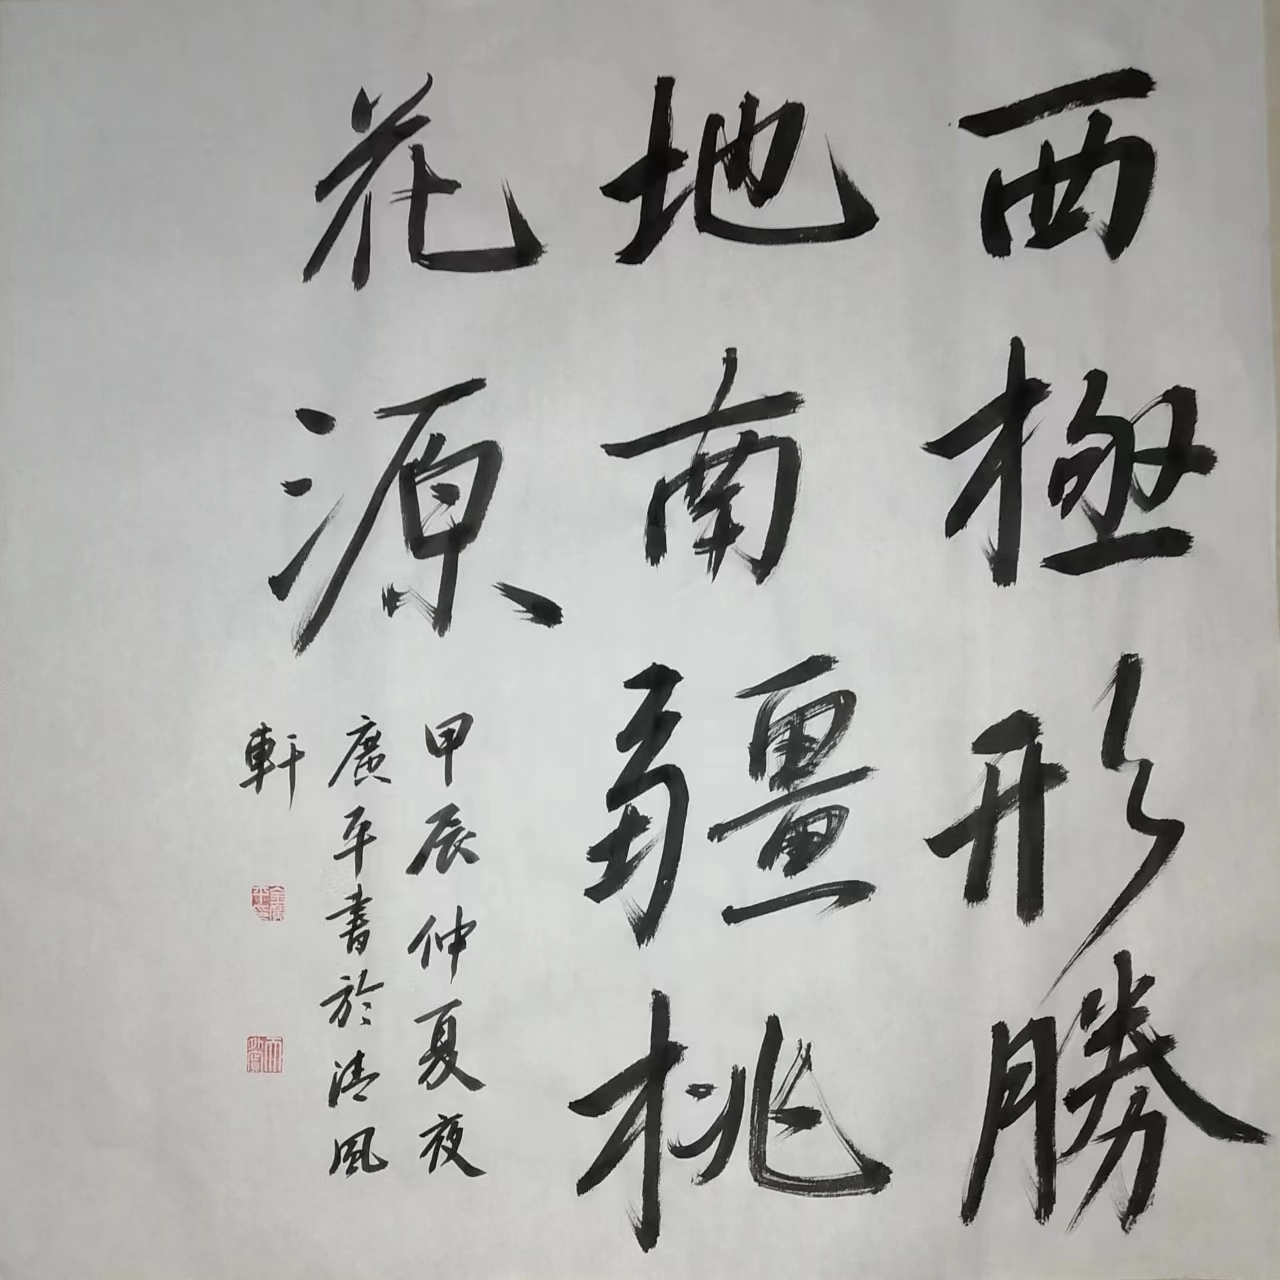 西極形勝
地南疆桃
花源
甲辰仲夏夜
廣平書於清風
軒